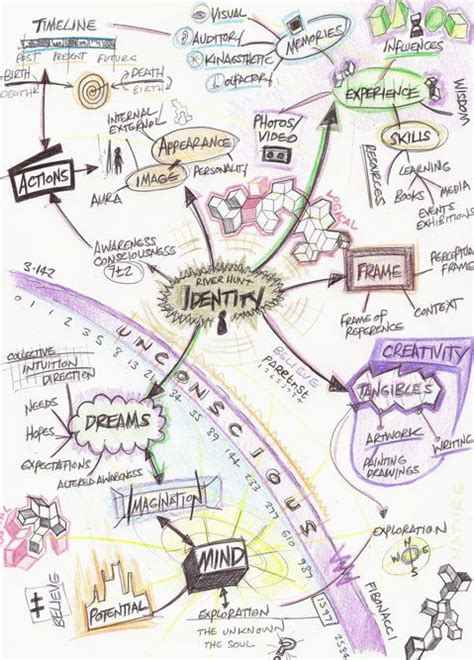 TIMELINE
PAST PRESENT FUTURE
BIRTH
DEATH
DEATH
BIRTH
VISUAL
AUDITORY
KINAESTHETIC
OLFACTORY
MEMORIES
INFLUENCES
EXPERIENCE
WISDOM
SKILLS
RESOURCES
LEARNING
BOOKS
MEDIA
EVENTS
EXHIBITIONS
PHOTOS/
VIDEO
INTERNAL/
EXTERNAL
APPEARANCE
IMAGE
PERSONALITY
AURA
ACTIONS
AWARENESS
CONSCIOUSNESS
7±2
LOGICAL
RIVER HUNT
IDENTITY
FRAME
PERCEPTION
FRAME
CONTEXT
FRAME OF
REFERENCE
3.142
0 1 1 2 3 5 8 13 21 34 55 89 144 233 377 610 987 1597 2584
UNCONSCIOUS
BELIEVE
CREATIVITY
TANGIBLES
ARTWORK
WRITING
PAINTING
DRAWINGS
COLLECTIVE
INTUITION
DIRECTION
NEEDS
HOPES
EXPECTATIONS
DREAMS
ALTERED AWARENESS
IMAGINATION
MIND
POTENTIAL
BELIEVE
EXPLORATION
THE UNKNOWN
THE SOUL
EXPLORATION
N
E
S
W
NATURE
FIBONACCI